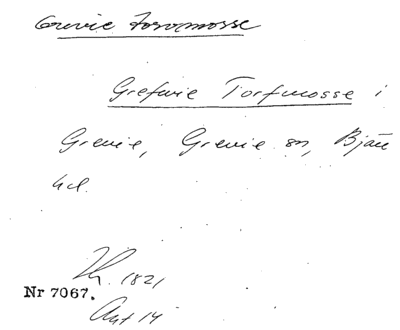 Grevie Torvmosse
Grefwie Torfmosse i
Grevie, Grevie sn, Bjäre
hd.
1821
Nr 7067.
Akt 14